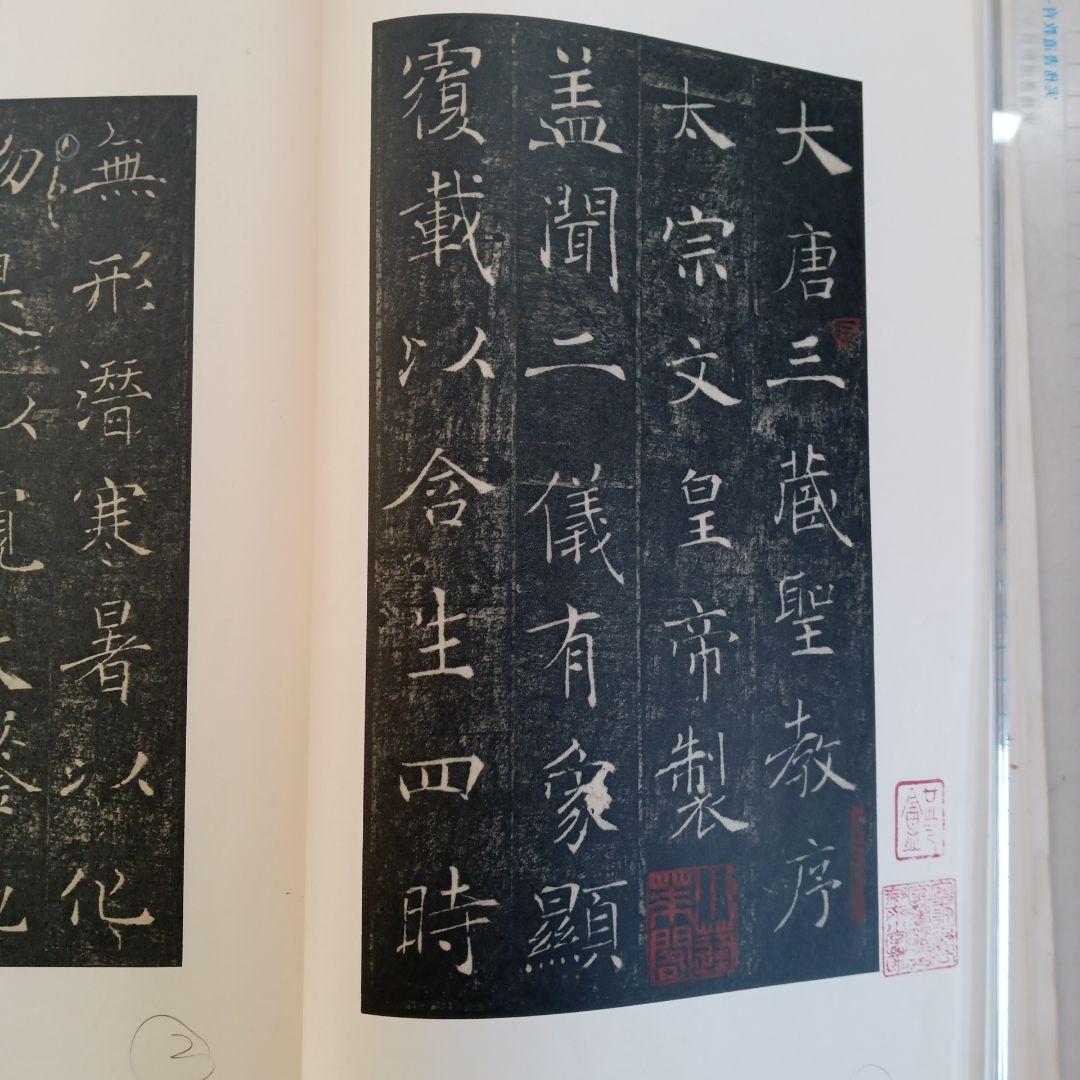 大唐三蔵聖教序
太宗文皇帝製
盖聞二儀有象顯
覆載以含生四時
無形潛寒暑以化
物是以窺天鑒地
2